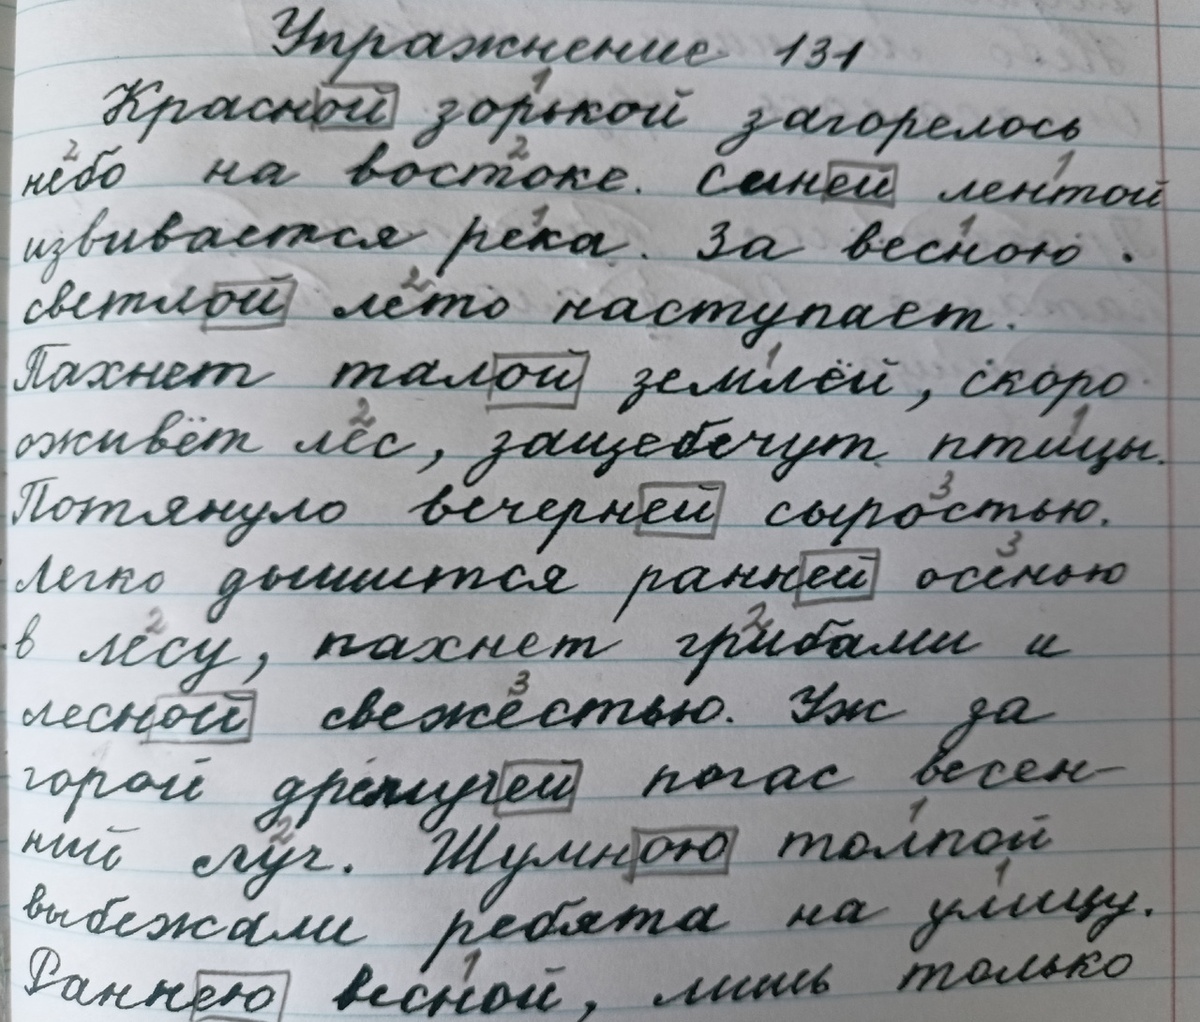 Упражнение 131
Красной зорькой загорелось
небо на востоке. Синей лентой
извивается река. За весною
светлой лето наступает.
Пахнет талой землёй, скоро
оживёт лес, защебечут птицы.
Потянуло вечерней сыростью.
Легко дышится ранней осенью
в лесу, пахнет грибами и
лесной свежестью. Уж за
горой дремучей погас весен-
ний луч. Шумною толпой
выбежали ребята на улицу.
Раннею весной, лишь только